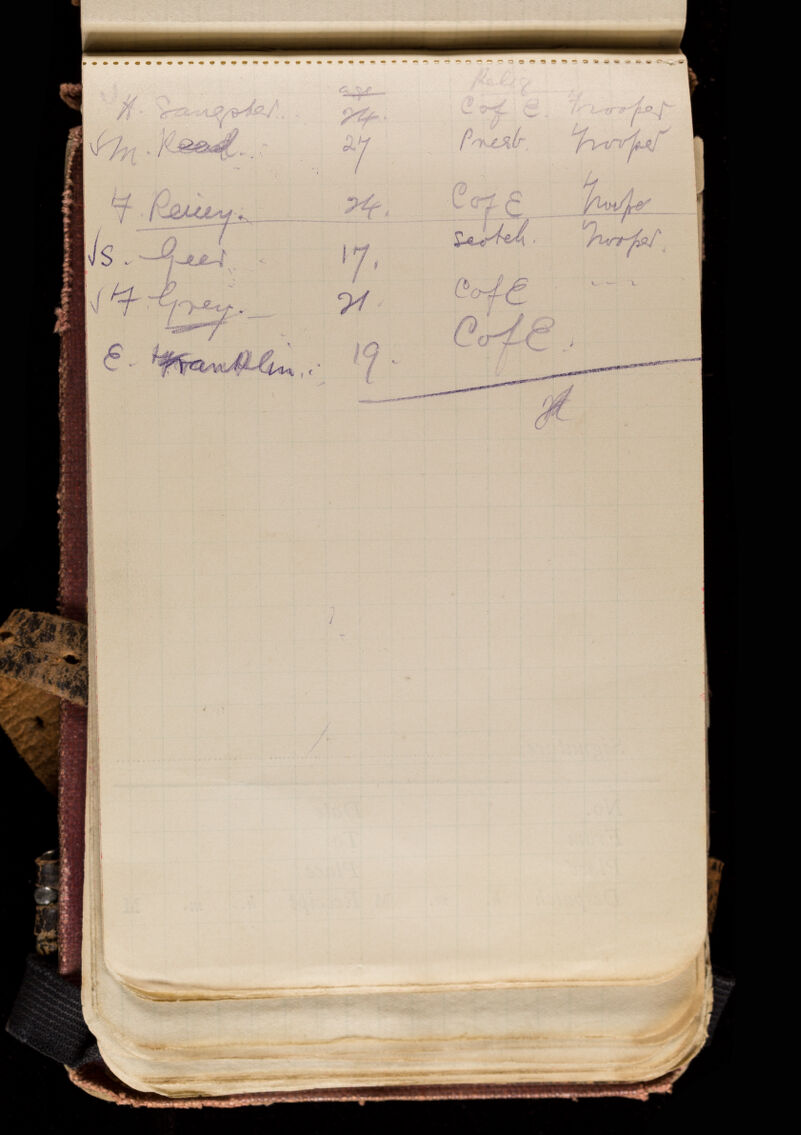 age Relig
H. Sangster. 24. C of E. Trooper
√ M. Read. 27 Presb. Trooper
F. Reiley. 24. C of E Trooper
√ S. Geer 17. Scotch. Trooper.
√ F. Grey. 21. C of E " "
E. Franklin. 19. C of E.